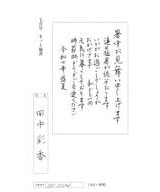 暑中お見舞い申し上げます
連日猛暑が続いております
いかがお過ごしでしょうか
おかげさまで、私ども一同
元気に暮らしております
時節柄どうぞご自愛ください
令和七年盛夏
氏名
田中彩香